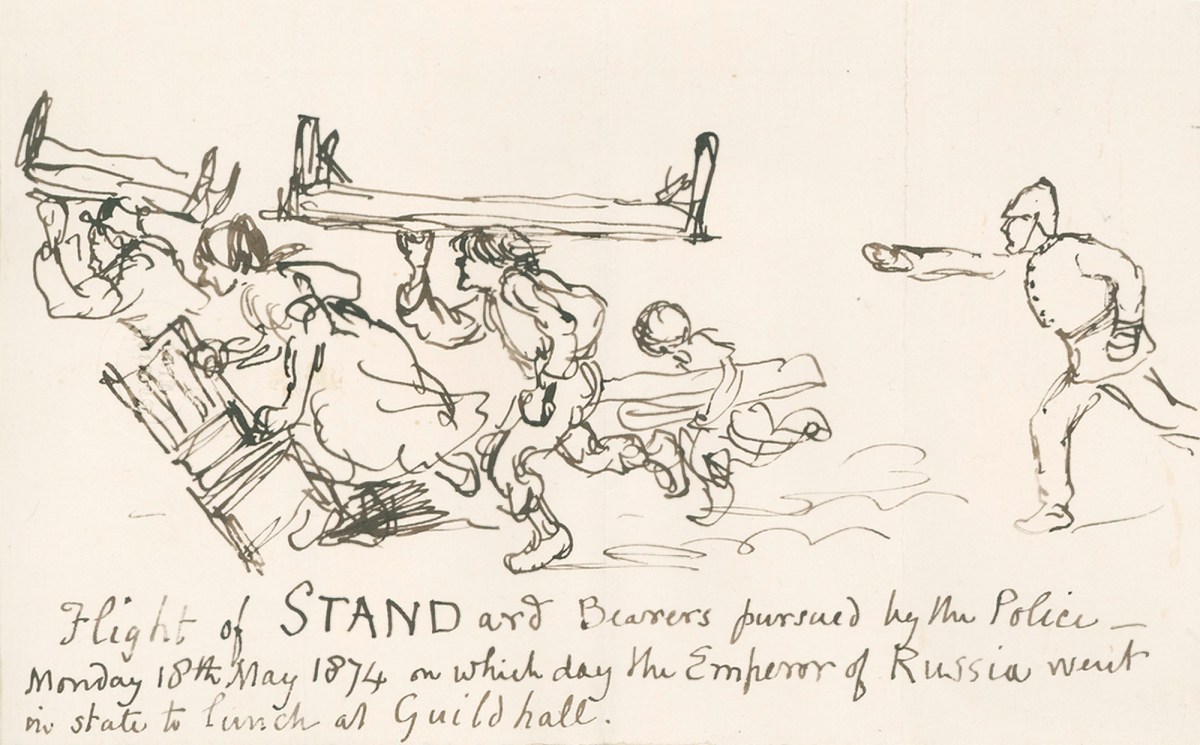 Flight of STANDard Bearers pursued by the Police —
Monday 18th May 1874 on which day the Emperor of Russia went
in state to lunch at Guildhall.